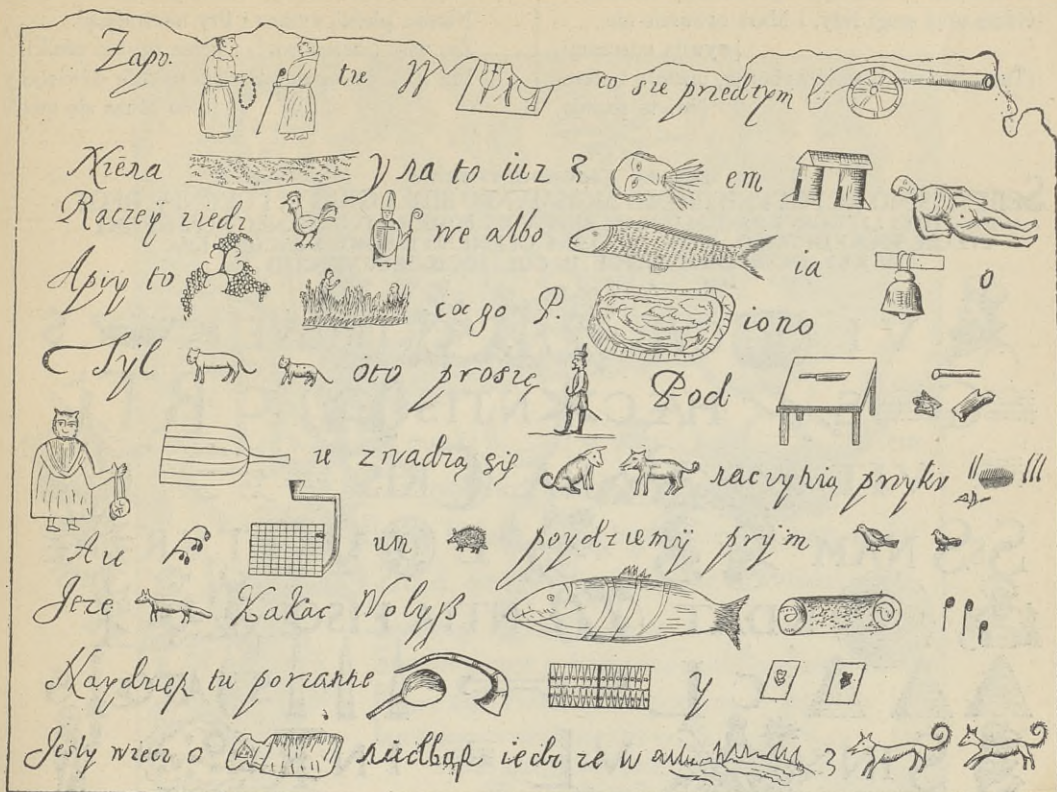 Zapo. tu W co sie przedtym
Niēna y na to iuz З em
Raczey ziedz we albo ia o
Apiy to co go P. iono
Tyl oto proszę Pod
u znadzą się raczyhią przyku
Au um poydziemÿ prÿm
Jeze Kakac Wolyß
Naydzieß tu poranne y
Jesly wiecz o niedbaß iedz ze w З